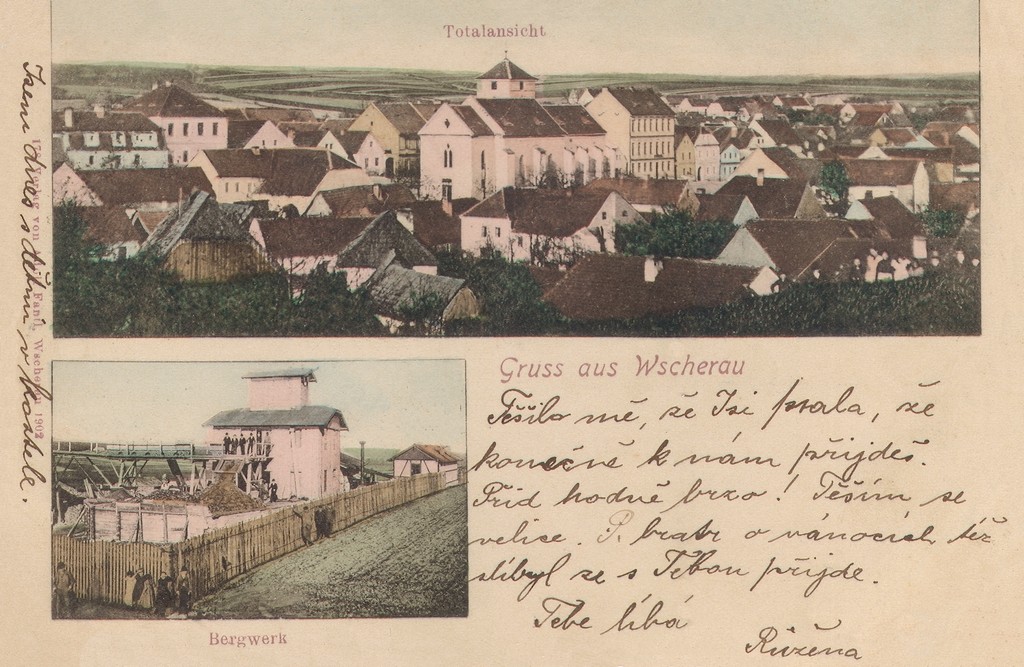 Totalansicht
Gruss aus Wscherau
Těšilo mě, že Jsi psala, že
konečně k nám přijdeš.
Přid hodně brzo! Těším se
velice. P. bratr o vánocích též
slíbyl že s Tebou přijde.
Tebe líbá
Růžena
Bergwerk
Jsem dnes s
v kostele.
von Fantl, Wscherau 1902